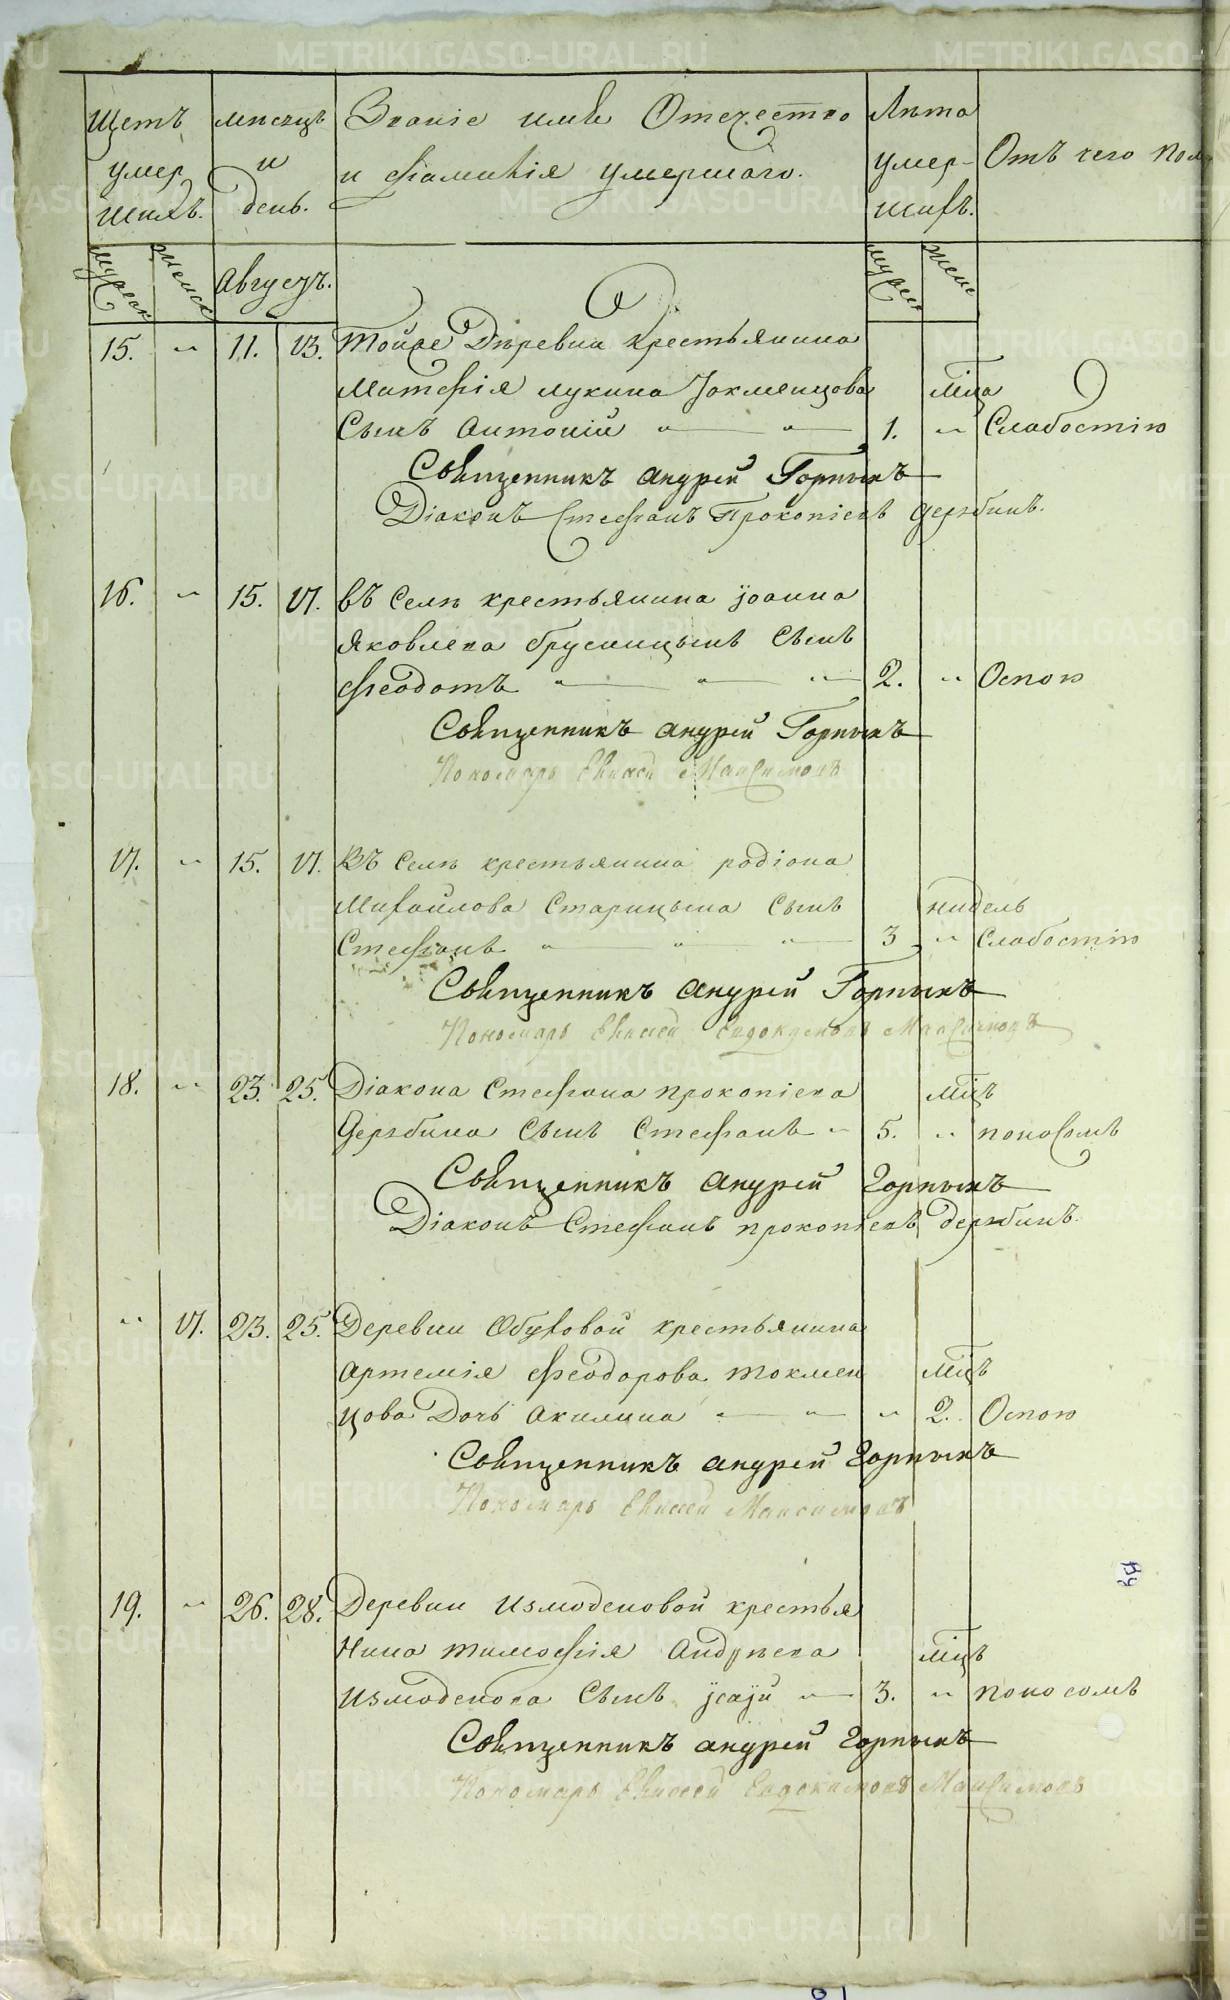 Щетъ умершихъ.
мѣсяцъ и день.
Званіе имя Отечество и фамилія умершаго.
Лѣта умершихъ.
Отъ чего пом
мужеск женск
Августъ.
мужеск женс
15. „ 11. 13. Тойже Деревни крестьянина
Матфія лукина Токменцова мц̃а
Сынъ Антоній „ „ 1. „ Слабостію
Священникъ Андрей Горныхъ
Діаконъ Стефанъ Прокопіевъ Дерябинъ.
16. „ 15. 17. въ Селѣ крестьянина Іоанна
Яковлева брусницынъ Сынъ
Феодотъ „ „ „ 2. „ Оспою
Священникъ Андрей Горныхъ
Пономарь Елисей Максимовъ
17. „ 15. 17. Въ Селѣ крестьянина родіона
Михайлова Старицына Сынъ нидель
Стефанъ „ „ „ 3 „ Слабостію
Священникъ Андрей Горныхъ
Пономарь Елисей Евдокимовъ Максимовъ
18. „ 23. 25. Діакона Стефана прокопіева мц̃ъ
Дерябина Сынъ Стефанъ „ 5. „ поносомъ
Священникъ Андрей Горныхъ
Діаконъ Стефанъ прокопіевъ дерябинъ.
„ 17. 23. 25. Деревни Обуховой крестьянина
Артемія Феодорова токмен мц̃ъ
цова Дочь Акилина „ „ „ 2. Оспою
Священникъ Андрей Горныхъ
Пономарь Елисей Максимовъ
19. „ 26. 28. Деревни Измоденовой крестья
нина тимофія Андрѣева мц̃ъ
Измоденова Сынъ „ 3. „ поносомъ
Священникъ Андрей Горныхъ
Пономарь Елисей Евдокимовъ Максимовъ
METRIKI.GASO-URAL.RU